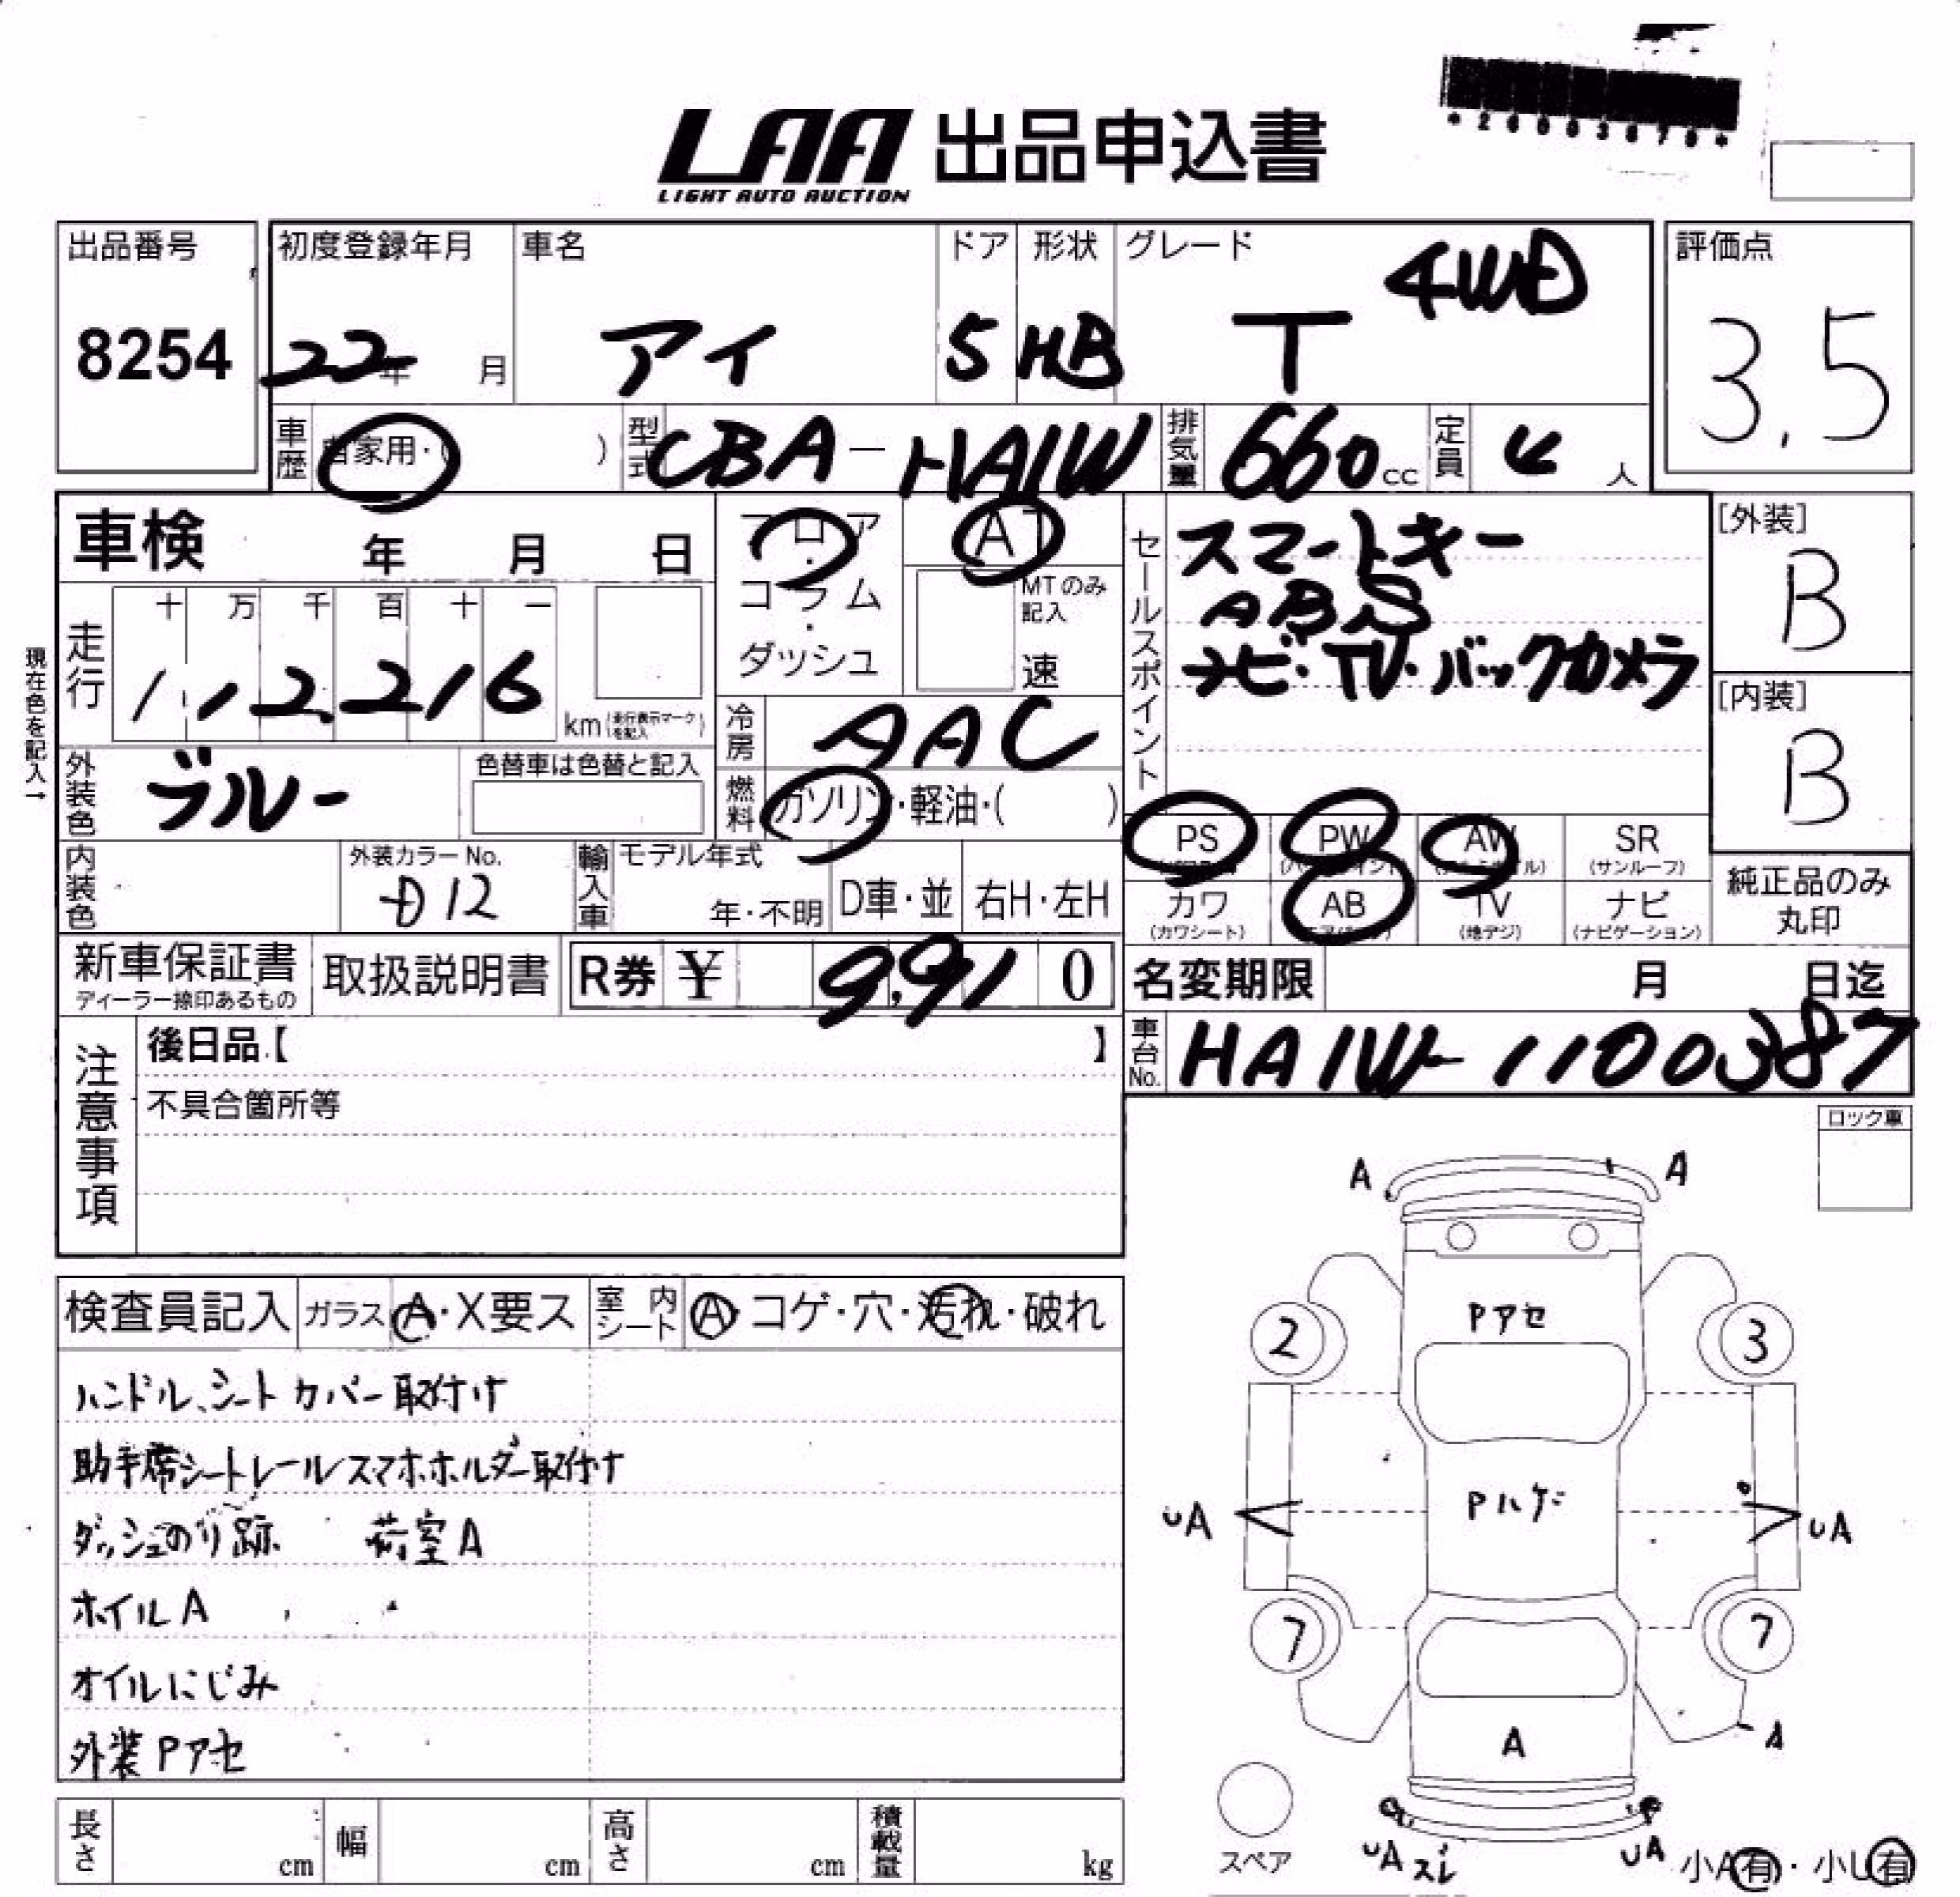 LAA 出品申込書
LIGHT AUTO AUCTION
*26003870*
出品番号
8254
初度登録年月
22年 月
車名
アイ
ドア
5
形状
HB
グレード
T 4WD
評価点
3.5
車歴
自家用・( )
型式
CBA-HA1W
排気量
660cc
定員
4人
車検 年 月 日
フロア・コラム・ダッシュ
AT
MTのみ記入
速
セールスポイント
スマートキー
ABS
ナビ・TV・バックカメラ
[外装]
B
[内装]
B
現在色を記入→
走行
十 万 千 百 十 一
112,216 km(走行表示マークを記入)
冷房
AAC
外装色
ブルー
色替車は色替と記入
燃料
ガソリン・軽油・( )
PS
PW
AW
SR
(サンルーフ)
カワ
(カワシート)
AB
TV
(地デジ)
ナビ
(ナビゲーション)
純正品のみ丸印
内装色
外装カラーNo.
D12
輸入車
モデル年式
年・不明
D車・並
右H・左H
新車保証書
ディーラー捺印あるもの
取扱説明書
R券 ¥ 9,910
名変期限 月 日迄
車台No.
HA1W-1100387
注意事項
後日品【 】
不具合箇所等
ロック車
検査員記入
ガラス A・X要ス
室内シート A・コゲ・穴・汚れ・破れ
ハンドル、シートカバー取付け
助手席シートレールスマホホルダー取付け
ダッシュのり跡 荷室A
ホイルA
オイルにじみ
外装Pアセ
A A
Pアセ
2 3
Pハゲ
UA UA
7 7
A A
スペア
UA スレ UA
小A有・小U有
長さ cm
幅 cm
高さ cm
積載量 kg